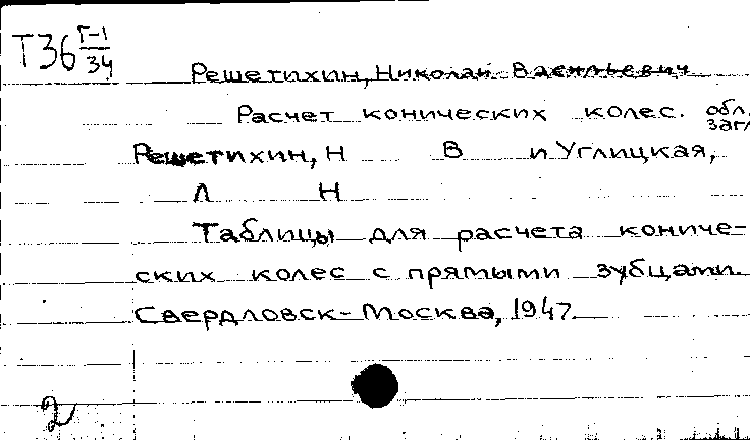 Т36 Г-1/34
Решетихин, Николай Васильевич
Расчет конических колес. обл. загл
Решетихин, Н В и Углицкая,
Л Н
Таблицы для расчета кониче-
ских колес с прямыми зубцами.
Свердловск-Москва, 1947.
2